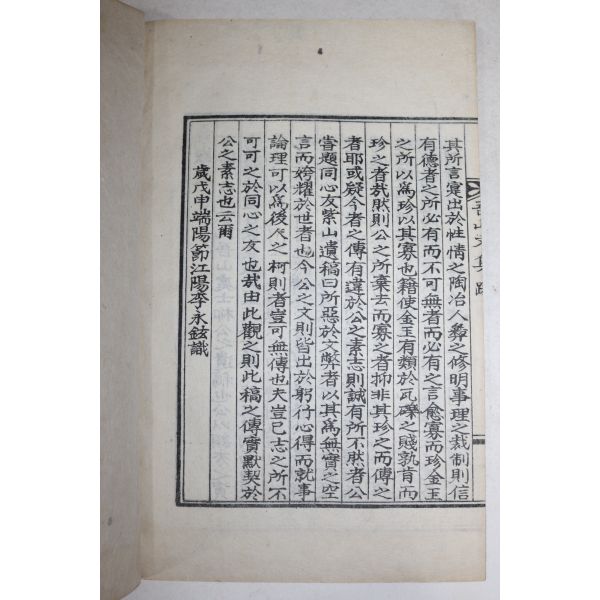 其所言寔出於性情之陶冶人彜之修明事理之裁制則信
有德者之所必有而不可無者而必有之言愈寡而珍金玉
之所以爲珍以其寡也籍使金玉有類於瓦礫之賤孰肯而
珍之者哉然則公之所棄去而寡之者抑非其珍之而傳之
者耶或疑今者之傳有違於公之素志則誠有所不然者公
嘗題同心友紫山遺稿曰所惡於文弊者以其爲無實之空
言而姱耀於世者也今公之文則皆出於躬行心得而就事
論理可以爲後人之柯則者豈可無傳也夫豈已志之所不
可可之於同心之友也哉由此觀之則此稿之傳實默契於
公之素志也云爾
歲戊申端陽節江陽李永鉉識
山文集 跋